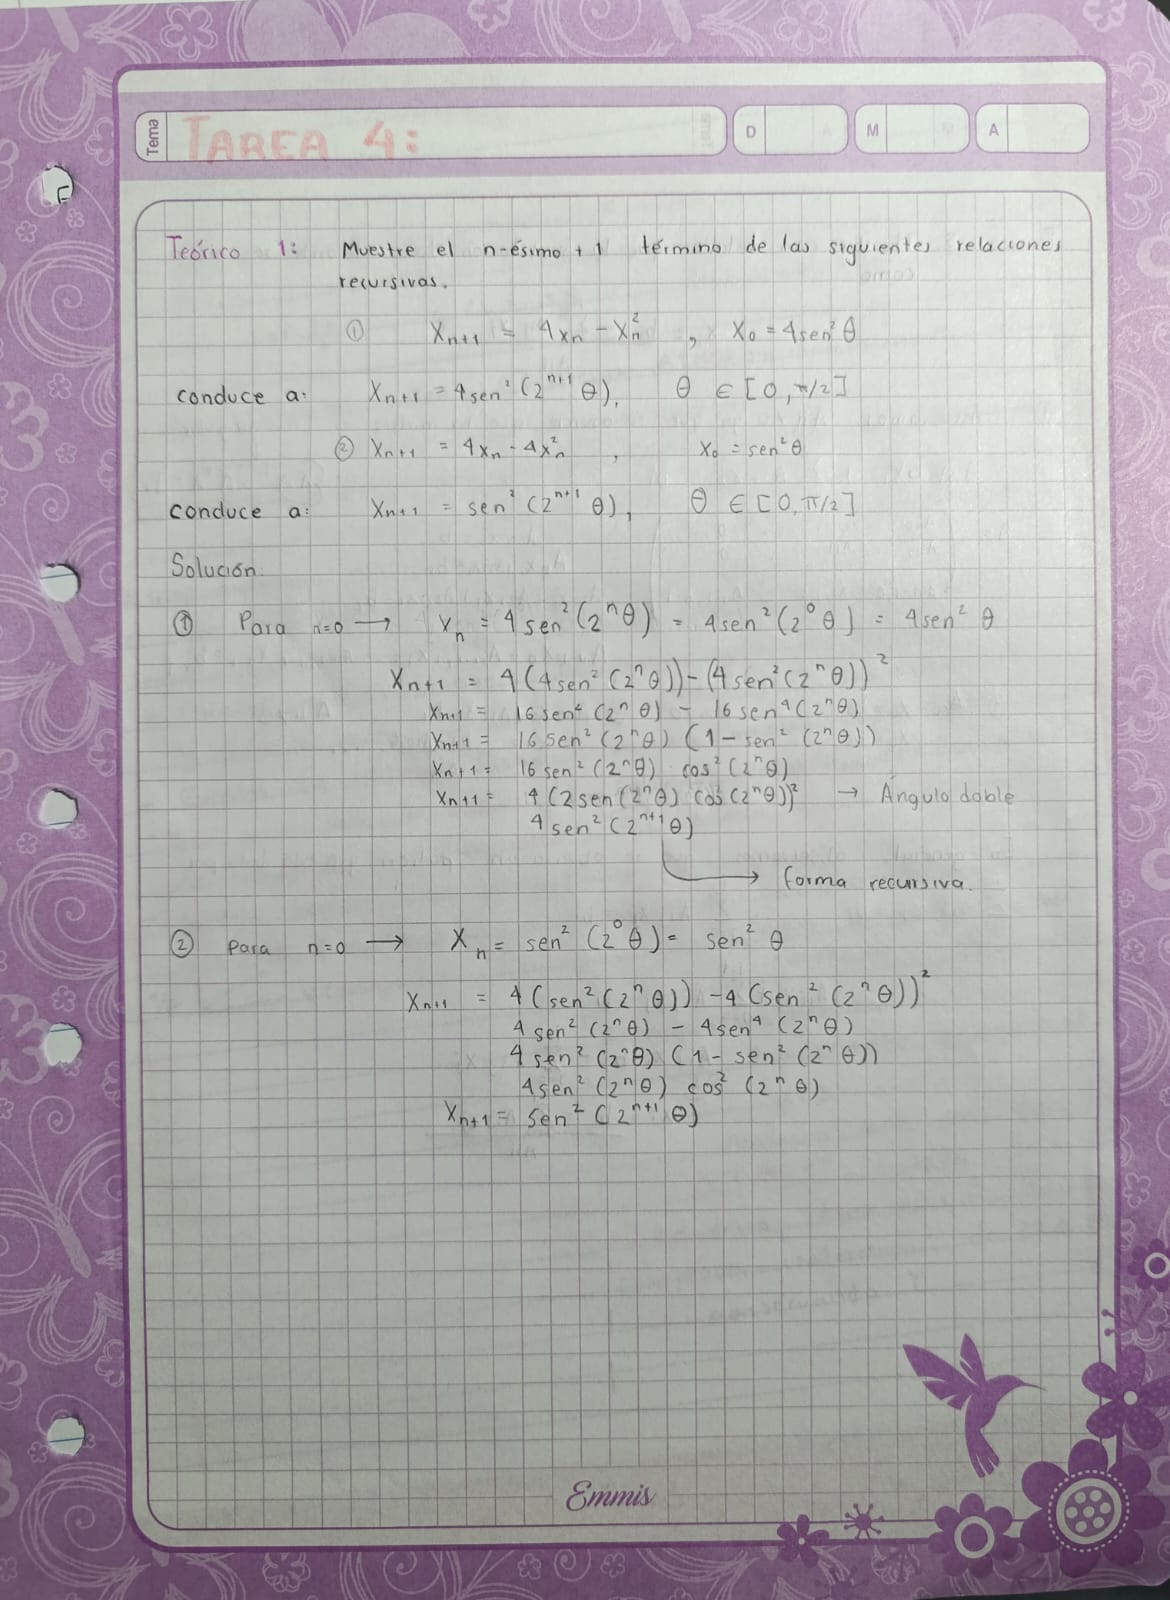 Tema
TAREA 4:
D
M
A
Teórico 1: Muestre el n-ésimo + 1 término de las siguientes relaciones
recursivas.
① Xn+1 = 4xn - Xn² , X0 = 4sen² θ
conduce a: Xn+1 = 4sen² (2ⁿ⁺¹ θ), θ ∈ [0, π/2]
② Xn+1 = 4xn - 4xn² , X0 = sen² θ
conduce a: Xn+1 = sen² (2ⁿ⁺¹ θ), θ ∈ [0, π/2]
Solución.
① Para n=0 → Xn = 4 sen² (2ⁿθ) = 4sen² (2⁰ θ) = 4sen² θ
Xn+1 = 4(4sen² (2ⁿθ)) - (4sen² (2ⁿθ))²
Xn+1 = 16 sen² (2ⁿ θ) - 16 sen⁴ (2ⁿθ)
Xn+1 = 16 sen² (2ⁿθ) (1 - sen² (2ⁿθ))
Xn+1 = 16 sen² (2ⁿθ) cos² (2ⁿθ)
Xn+1 = 4 (2sen (2ⁿθ) cos (2ⁿθ))² → Ángulo doble
4 sen² (2ⁿ⁺¹ θ)
→ forma recursiva.
② Para n=0 → Xn = sen² (2⁰ θ) = sen² θ
Xn+1 = 4 (sen² (2ⁿ θ)) - 4 (sen² (2ⁿ θ))²
4 sen² (2ⁿθ) - 4sen⁴ (2ⁿθ)
4 sen² (2ⁿθ) (1 - sen² (2ⁿ θ))
4sen² (2ⁿθ) cos² (2ⁿ θ)
Xn+1 = sen² (2ⁿ⁺¹ θ)
Emmis